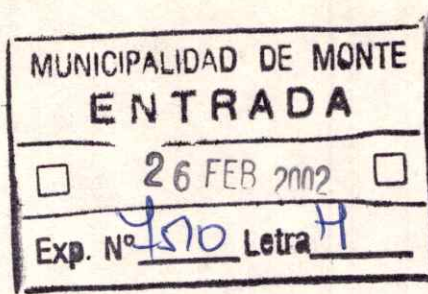 MUNICIPALIDAD DE MONTE
ENTRADA
26 FEB 2002
Exp. Nº 7510 Letra